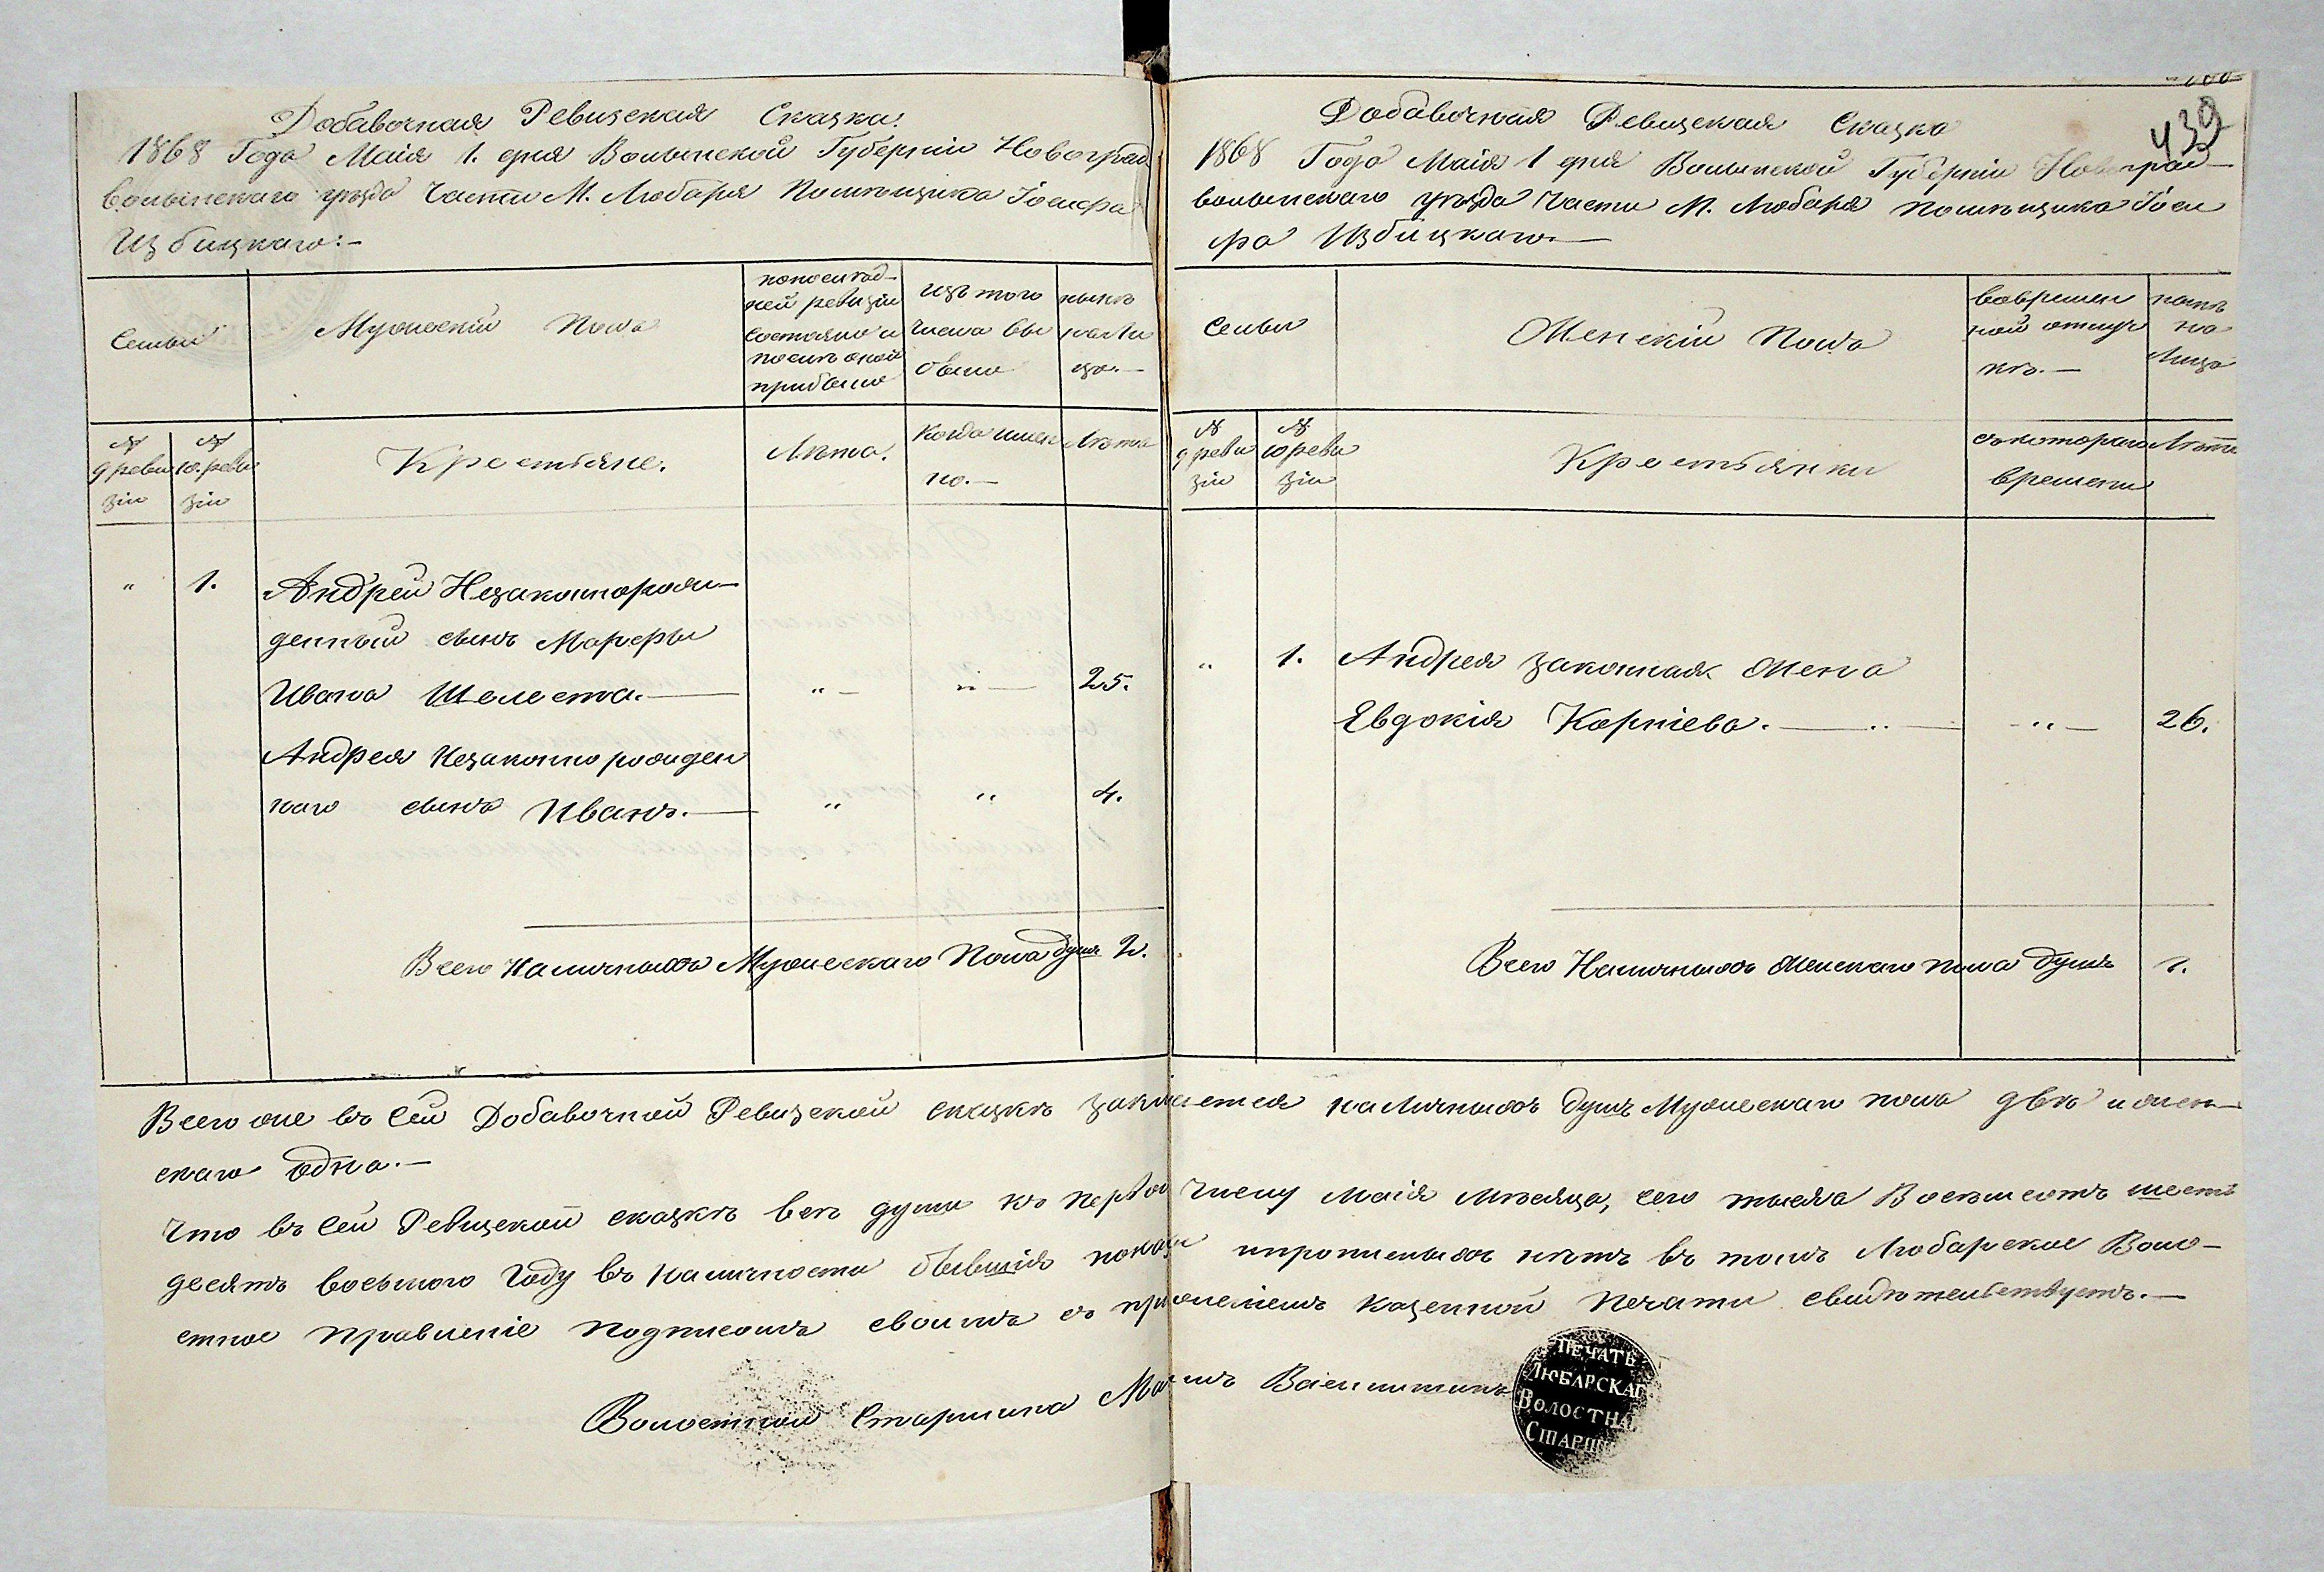 Добавочная Ревизская Сказка.
1868 Года Маія 1. дня Волынской Губерніи Новоград
волынскаго уѣзда части М. Любаря Помѣщика Іосифа
Избицкаго:-
Семьи
Мужескій Полъ
по послѣд-
ней ревизіи
состояло и
послѣ оной
прибыло
изъ того
числа вы
было
нынѣ
на ли
цо.-
№
9 реви
зіи
№
10. реви
зіи
Крестьяне.
Лѣта.
Когда имен
но.-
Лѣта
" 1. Андрей Незаконнорож-
денный сынъ Марфы
Ивана Шелеста.- "- "- 25.
Андрея Незаконно рожден
наго сынъ Иванъ.- " " 4.
Всего Наличныхъ Мужескаго Пола душъ 2.
439
Добавочная Ревизская Сказка
1868 Года Маія 1 дня Волынской Губерніи Новоград-
волынскаго уѣзда части М. Любаря помѣщика Іоси
фа Избицкаго.-
Семьи
Женскій Полъ
во времен
ной отлуч
кѣ.-
нынѣ
на
Лицо
№
9 реви
зіи
№
10 реви
зіи
Крестьянки
съ котораго
времени
Лѣта
" 1. Андрея законная жена
Евдокія Корніева.- "- 26.
Всего Наличныхъ Женскаго пола душъ 1.
Всего же въ сей Добавочной Ревизской сказкѣ заключается наличныхъ душъ Мужескаго пола двѣ и жен-
скаго одна.-
Что въ сей Ревизской сказкѣ всѣ души къ первому числу Маія мѣсяца, сего тысяча Восемьсотъ шесть
десятъ восьмого Году въ наличности бывшія показаны и прописныхъ нѣтъ въ томъ Любарское Воло-
стное правленіе подписомъ своимъ съ приложеніемъ казенной печати свидѣтельствуетъ.-
Волостной Старшина
ПЕЧАТЬ
ЛЮБАРСКАГ
ВОЛОСТНАГ
СТАРШ